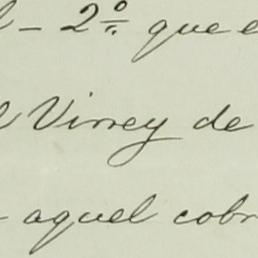 l - 2º que e
l Virrey de
- aquel cobr